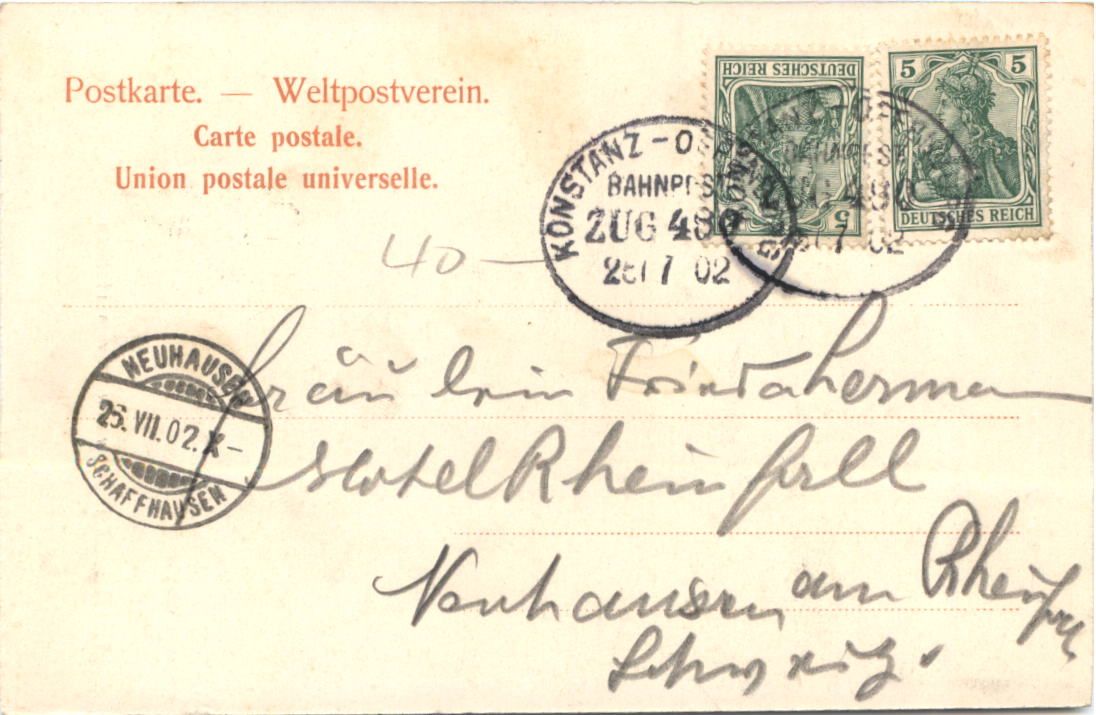 Postkarte. — Weltpostverein.
Carte postale.
Union postale universelle.
DEUTSCHES REICH
5
5 5
DEUTSCHES REICH
KONSTANZ - OFFENBURG
BAHNPOST
ZUG 480
25 7 02
BAHNPOST
ZUG 480
7 02
40 —
NEUHAUSEN
25. VII. 02. X –
SCHAFFHAUSEN
Fräulein Frieda Herman
Hotel Rheinfall
Neuhausen am Rheinfall
Schweiz.